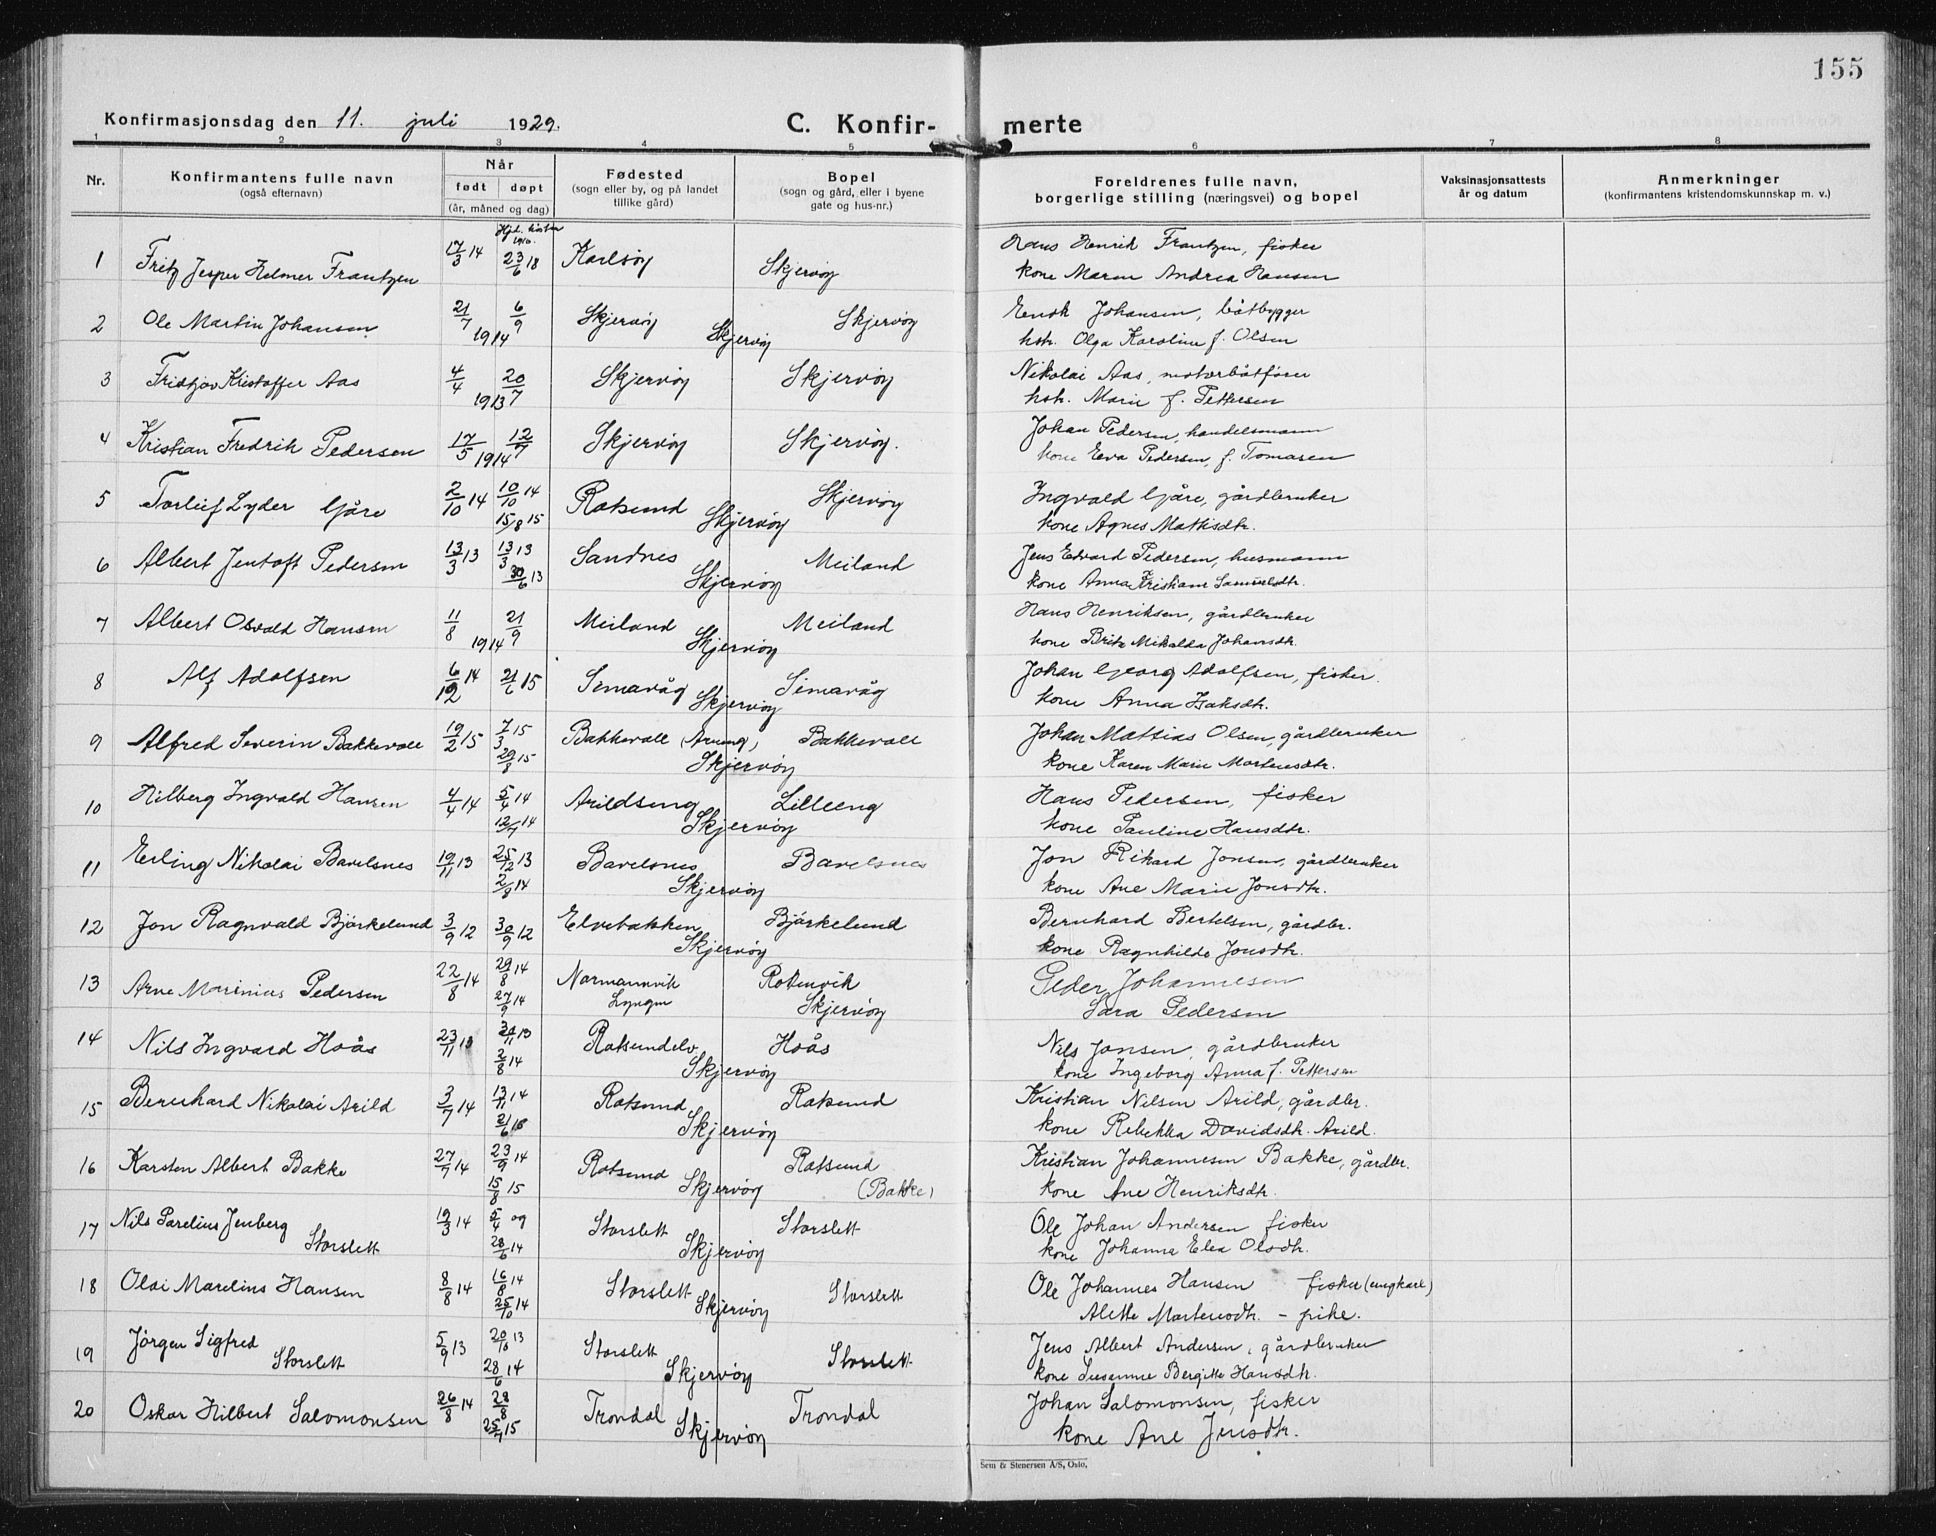 155
Konfirmasjonsdag den 11. juli 1929. C. Konfir- merte
1 2 3 4 5 6 7 8
Nr. Konfirmantens fulle navn (også efternavn) Når født døpt (år, måned og dag) Fødested (sogn eller by, og på landet tillike gård) Bopel (sogn og gård, eller i byene gate og hus-nr.) Foreldrenes fulle navn, borgerlige stilling (næringsvei) og bopel Vaksinasjonsattests år og datum Anmerkninger (konfirmantens kristendomskunnskap m. v.)
1 Fritz Jesper Helmer Frantzen 17/3 14 23/6 18 Karlsøy Skjervøy Hans Henrik Frantzen, fisker
kone Maren Andrea Hansen
2 Ole Martin Johansen 21/7 6/9 1914 Skjervøy Skjervøy Skjervøy Enok Johansen, båtbygger
hstr. Olga Karoline f. Olsen
3 Fridtjov Kristoffer Aas 4/4 20/7 1913 Skjervøy Skjervøy Nikolai Aas, motorbåtfører
hstr. Marie f. Pettersen
4 Kristian Fredrik Pedersen 17/5 12/7 1914 Skjervøy Skjervøy. Johan Pedersen, handelsmann
kone Eva Pedersen, f. Tomasen
5 Torleif Lyder Gåre 2/10 14 10/10 14 15/8 15 Rotsund Skjervøy Skjervøy Ingvald Gåre, gårdbruker
kone Agnes Mathisdtr.
6 Albert Jentoft Pedersen 13/3 13 13/3 13 30/6 13 Sandnes Skjervøy Meiland Jens Edvard Pedersen, husmann
kone Anna Kristiane Samuelsdtr.
7 Albert Osvald Hansen 11/8 21/9 1914 Meiland Skjervøy Meiland Hans Henriksen, gårdbruker
kone Brita Mikalda Johansdtr.
8 Alf Adolfsen 6/12 14 21/6 15 Simavåg Skjervøy Simavåg Johan Georg Adolfsen, fisker.
kone Anna Isaksdtr.
9 Alfred Severin Bakkevoll 19/2 15 7/3 15 29/8 15 Bakkevoll Skjervøy Bakkevoll Johan Mattias Olsen, gårdbruker
kone Karen Marie Mortensdtr.
10 Hilberg Ingvald Hansen 4/4 14 5/4 14 12/7 14 Arildseng Skjervøy Lilleeng Hans Pedersen, fisker
kone Pauline Hansdtr.
11 Erling Nikolai Bavelsnes 19/11 13 25/12 13 2/8 14 Bavelsnes Skjervøy Bavelsnes Jon Rikard Jonsen, gårdbruker
kone Ane Marie Jonsdtr.
12 Jon Ragnvald Bjørkelund 3/9 12 30/9 12 Elvebakken Skjervøy Bjørkelund Bernhard Bertelsen, gårdbr.
kone Ragnhilde Jonsdtr.
13 Arne Marinius Pedersen 22/8 14 29/8 14 27/9 14 Normannvik Lyngen Rotsuvik Skjervøy Peder Johannesen
Sara Pedersen
14 Nils Ingvard Hoås 23/11 13 2/8 14 Rotsundelv Skjervøy Hoås Nils Jonsen, gårdbruker
kone Ingeborg Anna f. Pettersen
15 Bernhard Nikolai Arild 3/7 14 13/11 14 Rotsund Skjervøy Rotsund Kristian Nilsen Arild, gårdbr.
kone Rebekka Davidsdtr. Arild.
16 Karsten Albert Bakke 27/7 14 23/9 14 15/8 15 Rotsund Skjervøy Rotsund (Bakke) Kristian Johannesen Bakke, gårdbr.
kone Ane Henriksdtr.
17 Nils Parelius Jenberg Storslett 19/3 14 5/4 og 28/6 14 Storslett Skjervøy Storslett Ole Johan Andersen fisker
kone Johanna Elea Olsdtr.
18 Olai Marelius Hansen 8/8 14 16/8 14 25/10 14 Storslett Skjervøy Storslett Ole Johannes Hansen fisker (ungkarl)
Alette Mortensdtr. - pike.
19 Jørgen Sigfred Storslett 5/9 13 20/10 13 28/6 14 Storslett Skjervøy Storslett Jens Albert Andersen, gårdbruker
kone Susanne Bergitte Hansdtr.
20 Oskar Hilbert Salomonsen 26/8 14 28/8 25/7 15 Trondal Skjervøy Trondal Johan Salomonsen, fisker
kone Ane Jensdtr.
Sem & Stenersen A/S, Oslo.